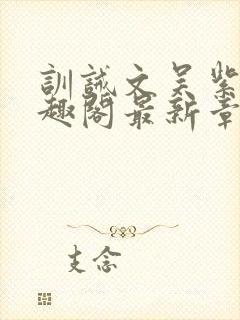 訓誡文吴紫
趣閣最新章
支念